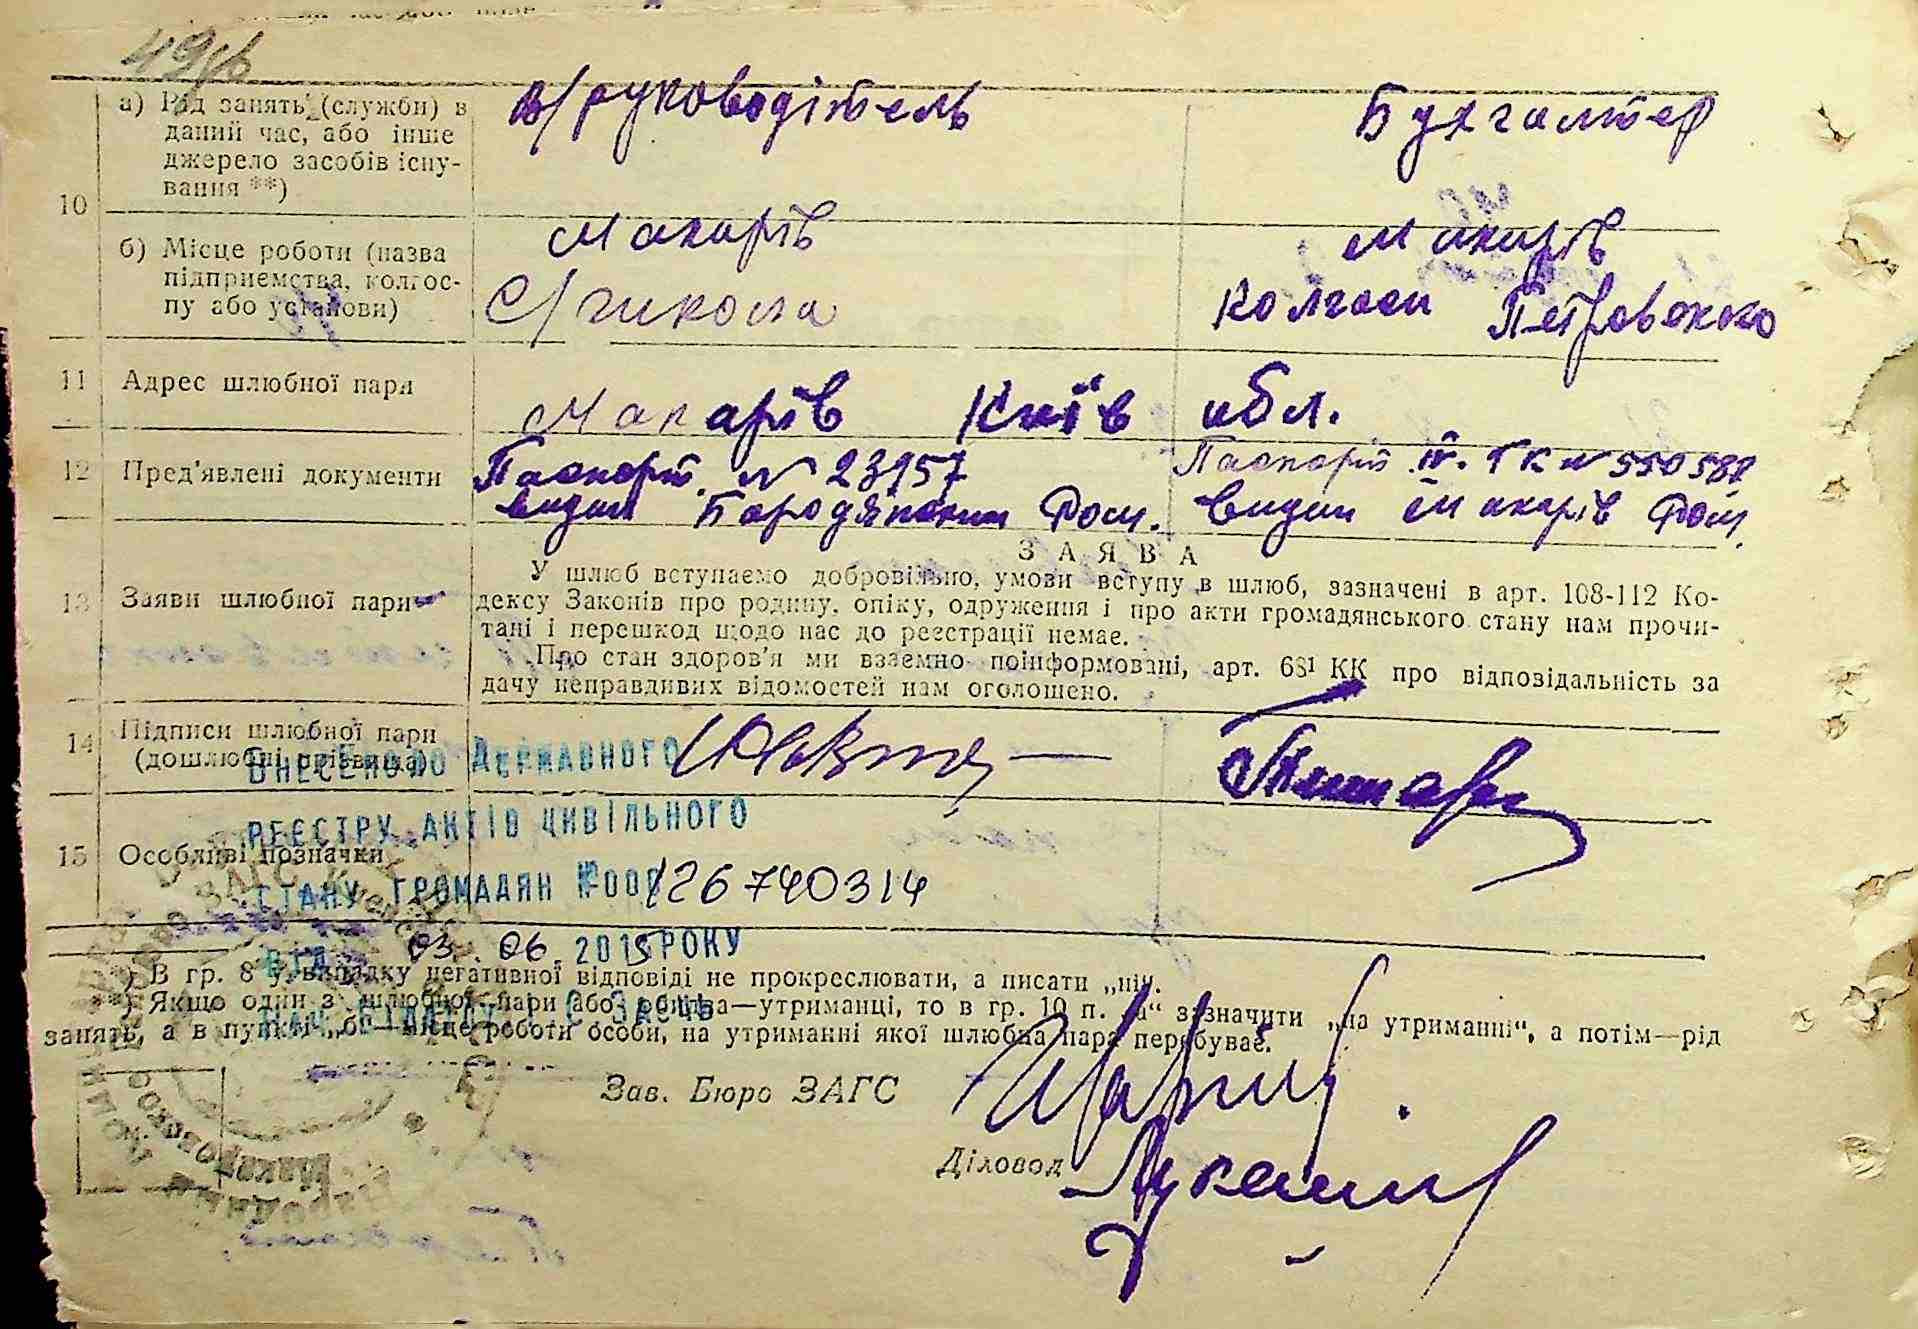 а) Рід занять (служби) в
даний час, або інше
джерело засобів існу-
вання **)
в/руководітель
Бухгалтер
10
б) Місце роботи (назва
підприємства, колгос-
пу або установи)
Макарів
С/школа
Макарів
Колгосп Петровського
11 Адрес шлюбної пари
Макарів Київ обл.
12 Пред'явлені документи
Паспорт N 23957
видан Бородянским
Паспорт IV. ТК N 550588
видан Макарів
13 Заяви шлюбної пари
ЗАЯВА
У шлюб вступаємо добровільно, умови вступу в шлюб, зазначені в арт. 108-112 Ко-
дексу Законів про родину, опіку, одруження і про акти громадянського стану нам прочи-
тані і перешкод щодо нас до реєстрації немає.
Про стан здоров'я ми взаємно поінформовані, арт. 68¹ КК про відповідальність за
дачу неправдивих відомостей нам оголошено.
14 Підписи шлюбної пари
(дошлюбні прізвища)
ВНЕСЕНО ДО ДЕРЖАВНОГО
РЕЄСТРУ АКТІВ ЦИВІЛЬНОГО
15 Особливі позначки
СТАНУ ГРОМАДЯН №00126740314
ВІД 03.06.2015 РОКУ
*) В гр. 8 у випадку негативної відповіді не прокреслювати, а писати „ні“.
**) Якщо один з шлюбної пари або обидва—утриманці, то в гр. 10 п. „а“ зазначити „на утриманні“, а потім—рід
занять, а в пункті „б“—місце роботи особи, на утриманні якої шлюбна пара перебуває.
Зав. Бюро ЗАГС
Діловод